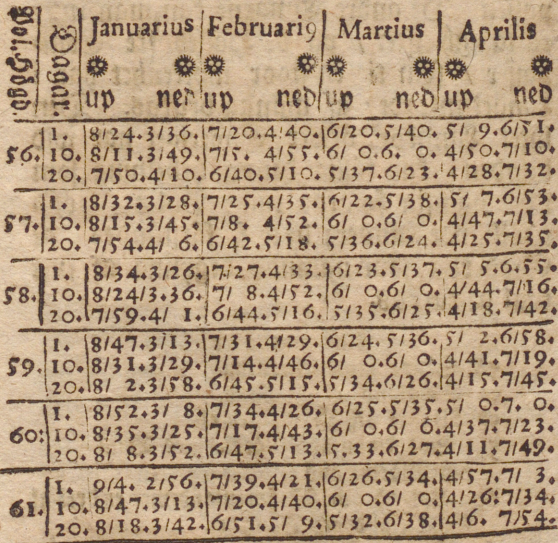 Pol.Högd. Dagar. Januarius Februari9 Martius Aprilis
up ned up ned up ned up ned
1. 8/24.3/36. 7/20.4/40. 6/20.5/40. 5/ 9.6/51.
56. 10. 8/11.3/49. 7/5. 4/55. 6/ 0.6. 0. 4/50.7/10.
20. 7/50.4/10. 6/40.5/10. 5/37.6/23. 4/28.7/32.
1. 8/32.3/28. 7/25.4/35. 6/22.5/38. 5/ 7.6/53.
57. 10. 8/15.3/45. 7/8. 4/52. 6/ 0.6/ 0. 4/47.7/13.
20. 7/54.4/ 6. 6/42.5/18. 5/36.6/24. 4/25.7/35.
1. 8/34.3/26. 7/27.4/33. 6/23.5/37. 5/ 5.6.55.
58. 10. 8/24/3.36. 7/ 8.4/52. 6/ 0.6/ 0. 4/44.7/16.
20. 7/59.4/ 1. 6/44.5/16. 5/35.6/25. 4/18.7/42.
1. 8/47.3/13. 7/31.4/29. 6/24.5/36. 5/ 2.6/58.
59. 10. 8/31.3/29. 7/14.4/46. 6/ 0.6/ 0. 4/41.7/19.
20. 8/ 2.3/58. 6/45.5/15. 5/34.6/26. 4/15.7/45.
1. 8/52.3/ 8. 7/34.4/26. 6/25.5/35. 5/ 0.7. 0.
60: 10. 8/35.3/25. 7/17.4/43. 6/ 0.6/ 0. 4/37.7/23.
20. 8/ 8.3/52. 6/47.5/13. 5.33.6/27. 4/11.7/49.
1. 9/4. 2/56. 7/39.4/21. 6/26.5/34. 4/57.7/ 3.
61. 10. 8/47.3/13. 7/20.4/40. 6/ 0.6/ 0. 4/26:7/34.
20. 8/18.3/42. 6/51.5/ 9. 5/32.6/38. 4/6. 7/54.